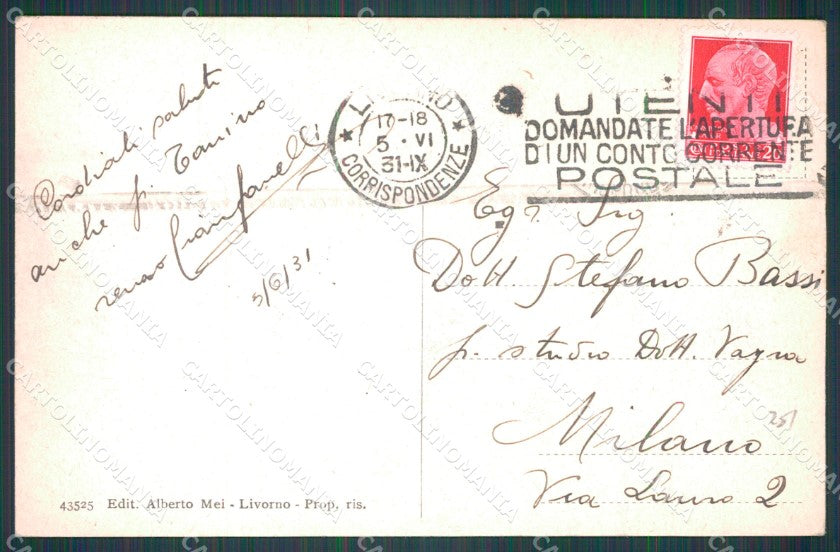 Cordiali saluti
anche p. Tonino
renzo Gianfanelli
5/6/31
LIVORNO
17-18
5 · VI
31-IX
CORRISPONDENZE
UTENTI
DOMANDATE L'APERTURA
DI UN CONTO CORRENTE
POSTALE
Egr. Sig.
Dott. Stefano Bassi
p. studio Dott. Vagna
Milano
Via Lauro 2
251
43525 Edit. Alberto Mei - Livorno - Prop. ris.
CARTOLINOMANIA